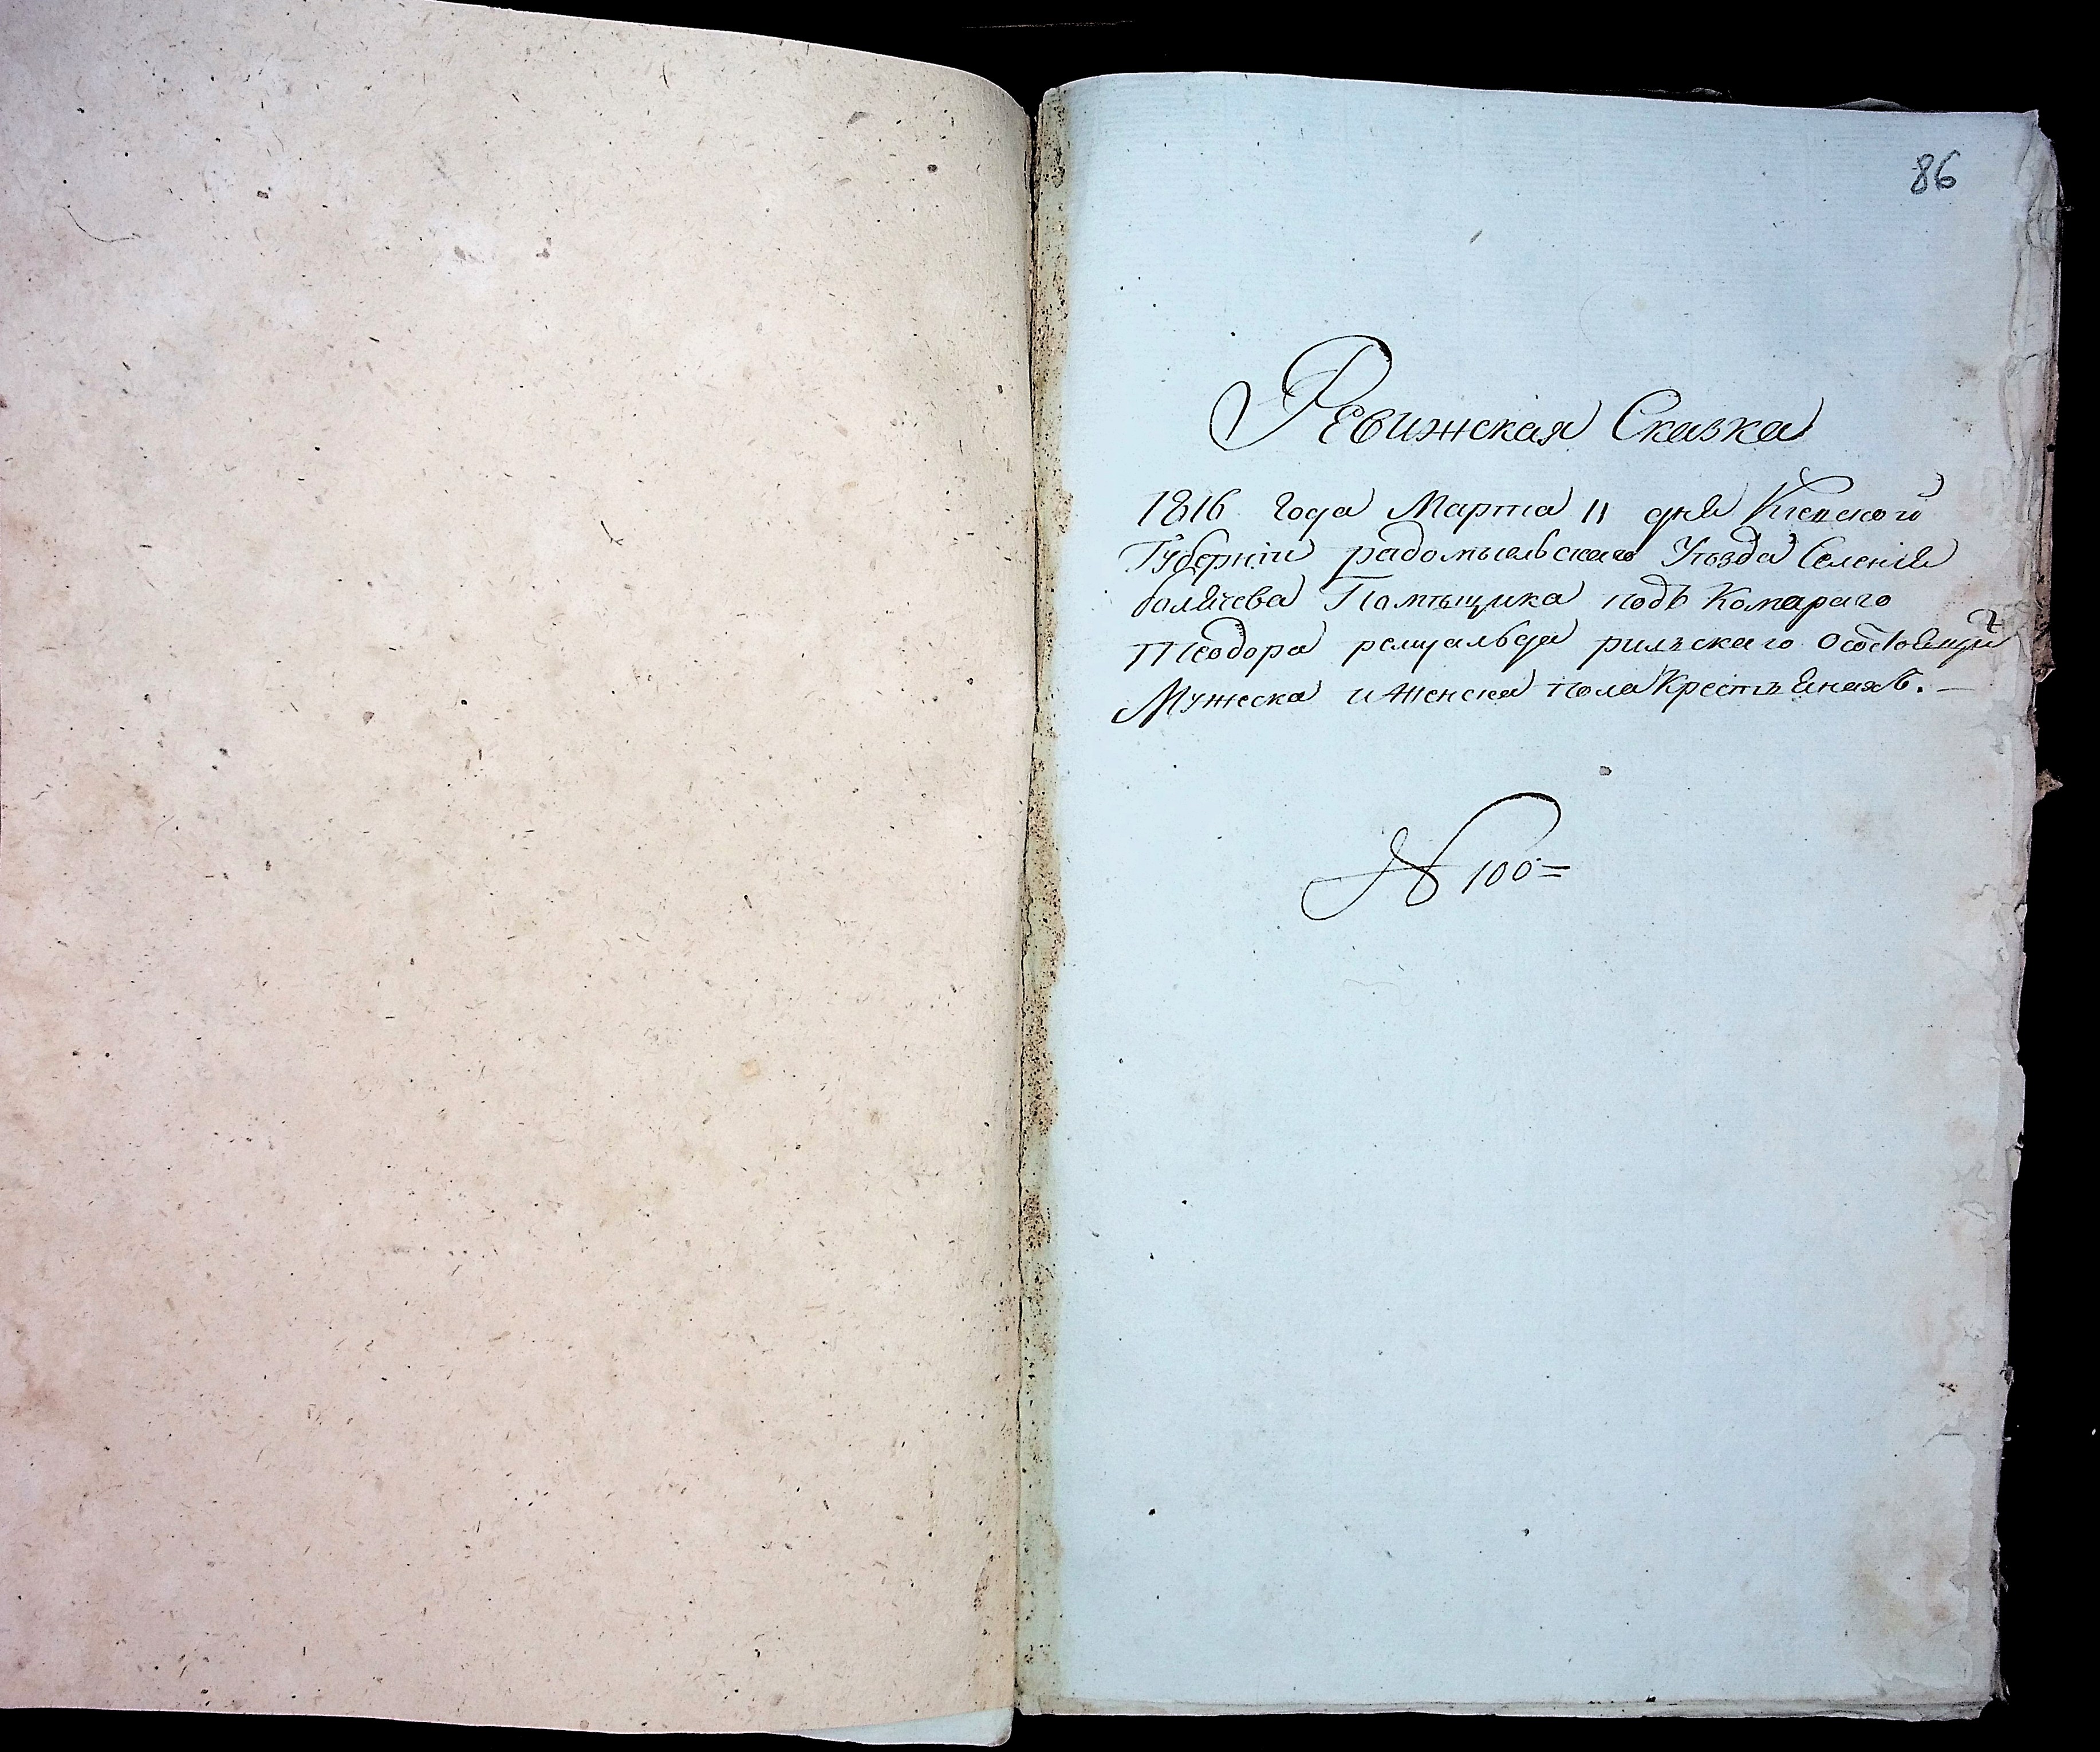 86
Ревижская Сказка
1816 года Марта 11 дня Кіевской
Губерніи радомысльскаго Уѣзда Селенія
болячева Помѣщика подъ Комараго
Теодора ромуальда рильскаго осостоящиͯ
Мужеска и Женска пола Крестьянахъ. —
N 100=